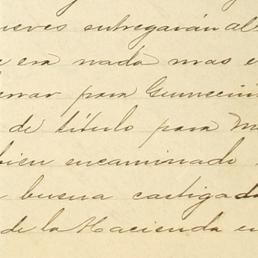 nueves entregarán al
era nada mas e
para
de título para M
bien encaminado
buena castigad
de la Hacienda en